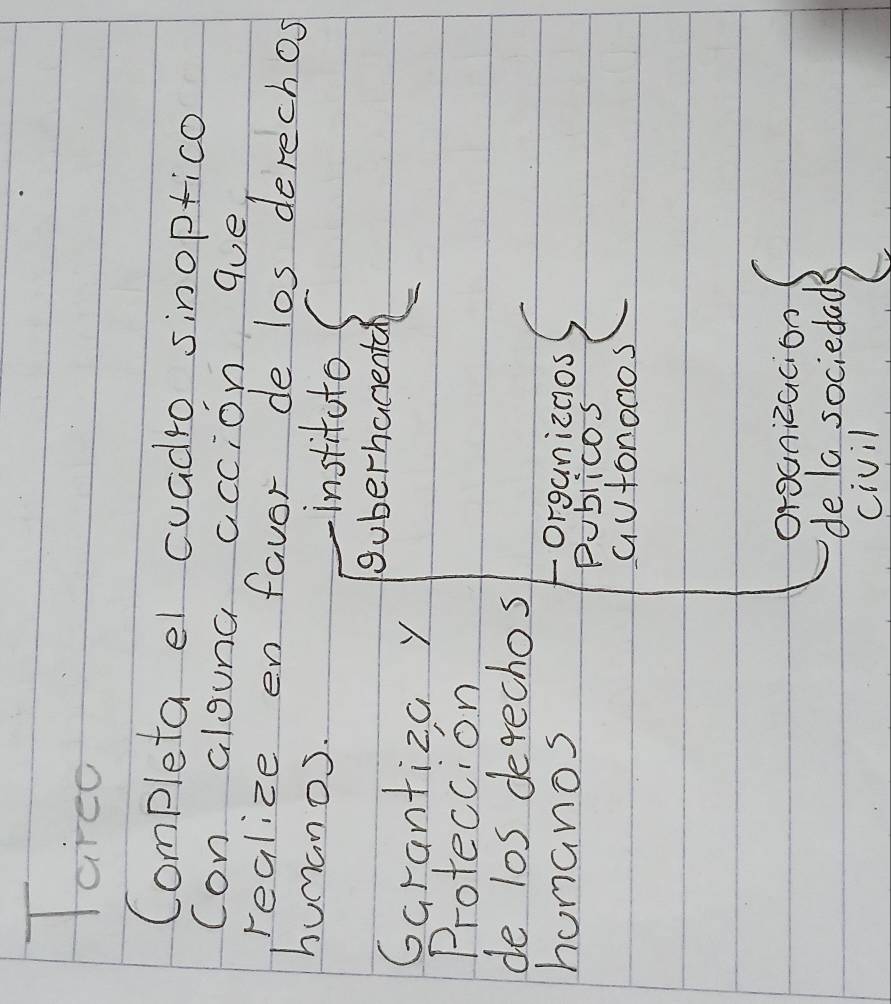 Tarea
Completa el cuadro sinoptico
Con alguna acción que
realize en favor de los derechos
humanos.
Garantiza y
Protección
de los derechos
humanos
instituto
gubernamental
organizmos
Publicos
autonomos
organización
de la sociedad
civil